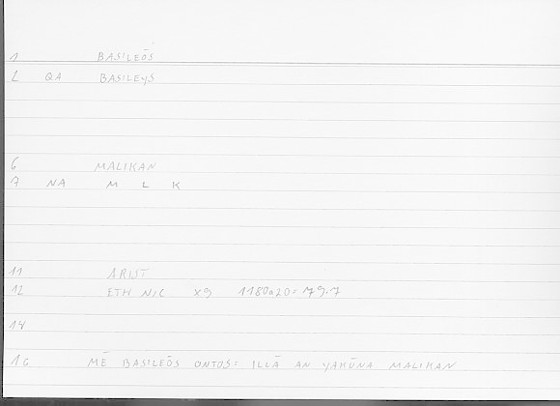 1 BASILEŌS
2 QA BASILEYS
6 MALIKAN
7 NA M L K
11 ARIST
12 ETH NIC X9 1180a20 = 79.7
14
16 MĒ BASILEŌS ONTOS: ILLĀ AN YAKŪNA MALIKAN